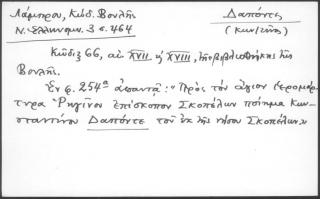 Λάμπρου, Κώδ. Βουλῆς
Ν. Ἑλληνομν. 3 σ. 464
Δαπόντε
(Κων/τῖνος)
Κῶδιξ 66, αἰ. XVII ἢ XVIII, τῆς βιβλιοθήκης τῆς
Βουλῆς.
Ἐν φ. 254α ἀπαντᾷ: «Πρὸς τὸν ἅγιον ἱερομάρ-
τυρα Ῥηγῖνον ἐπίσκοπον Σκοπέλων ποίημα Κων-
σταντίνου Δαπόντε τοῦ ἐκ τῆς νήσου Σκοπέλων»